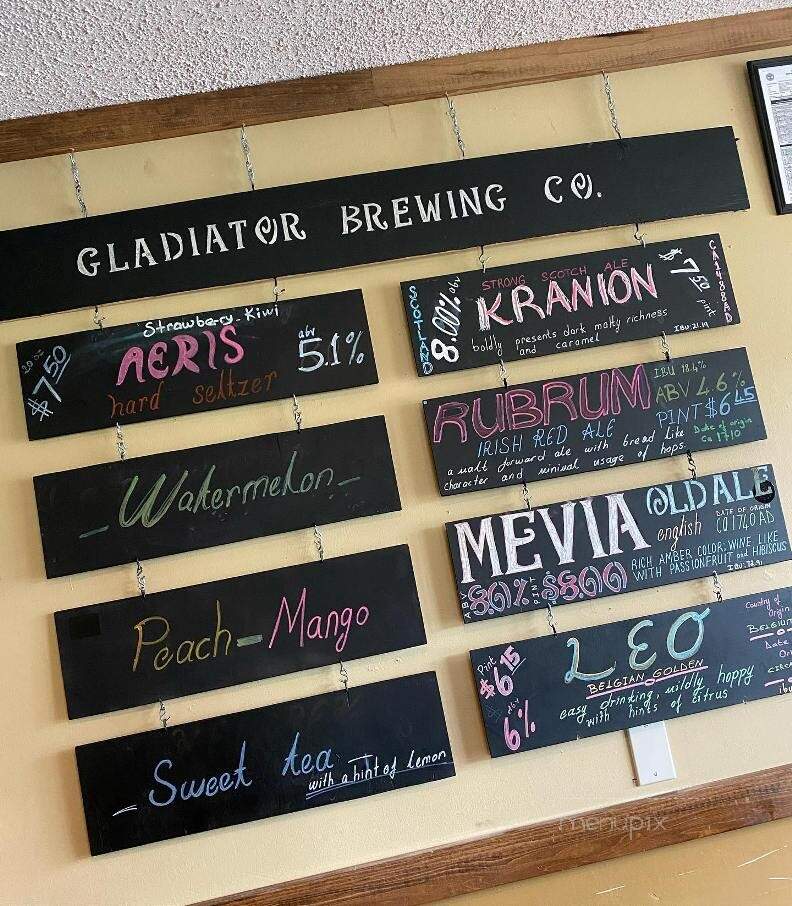 GLADIATOR BREWING CO.
Strawberry-Kiwi
AERIS
hard seltzer
20 oz
$7.50
abv
5.1%
- Watermelon -
Peach - Mango
- Sweet tea
with a hint of lemon
SCOTLAND
8.00% abv
STRONG SCOTCH ALE
KRANION
boldly presents dark malty richness
and caramel
IBU:21.19
$7.50 pint
CA 1488 AD
RUBRUM
IRISH RED ALE
a malt forward ale with bread like
character and minimal usage of hops
IBU 18.4%
ABV 4.6%
PINT $6.45
Date of origin
Ca 1710
MEVIA OLD ALE
english
DATE OF ORIGIN
CA 1740 AD
ABV 8.0% PINT $8.00
RICH AMBER COLOR; WINE LIKE
WITH PASSIONFRUIT and HIBISCUS
Pint
$6.15
abv
6%
LEO
BELGIAN GOLDEN
easy drinking, mildly hoppy
with hints of citrus
Country of
Origin
BELGIUM
Date
Ori
CIRCA
ibu
menupix